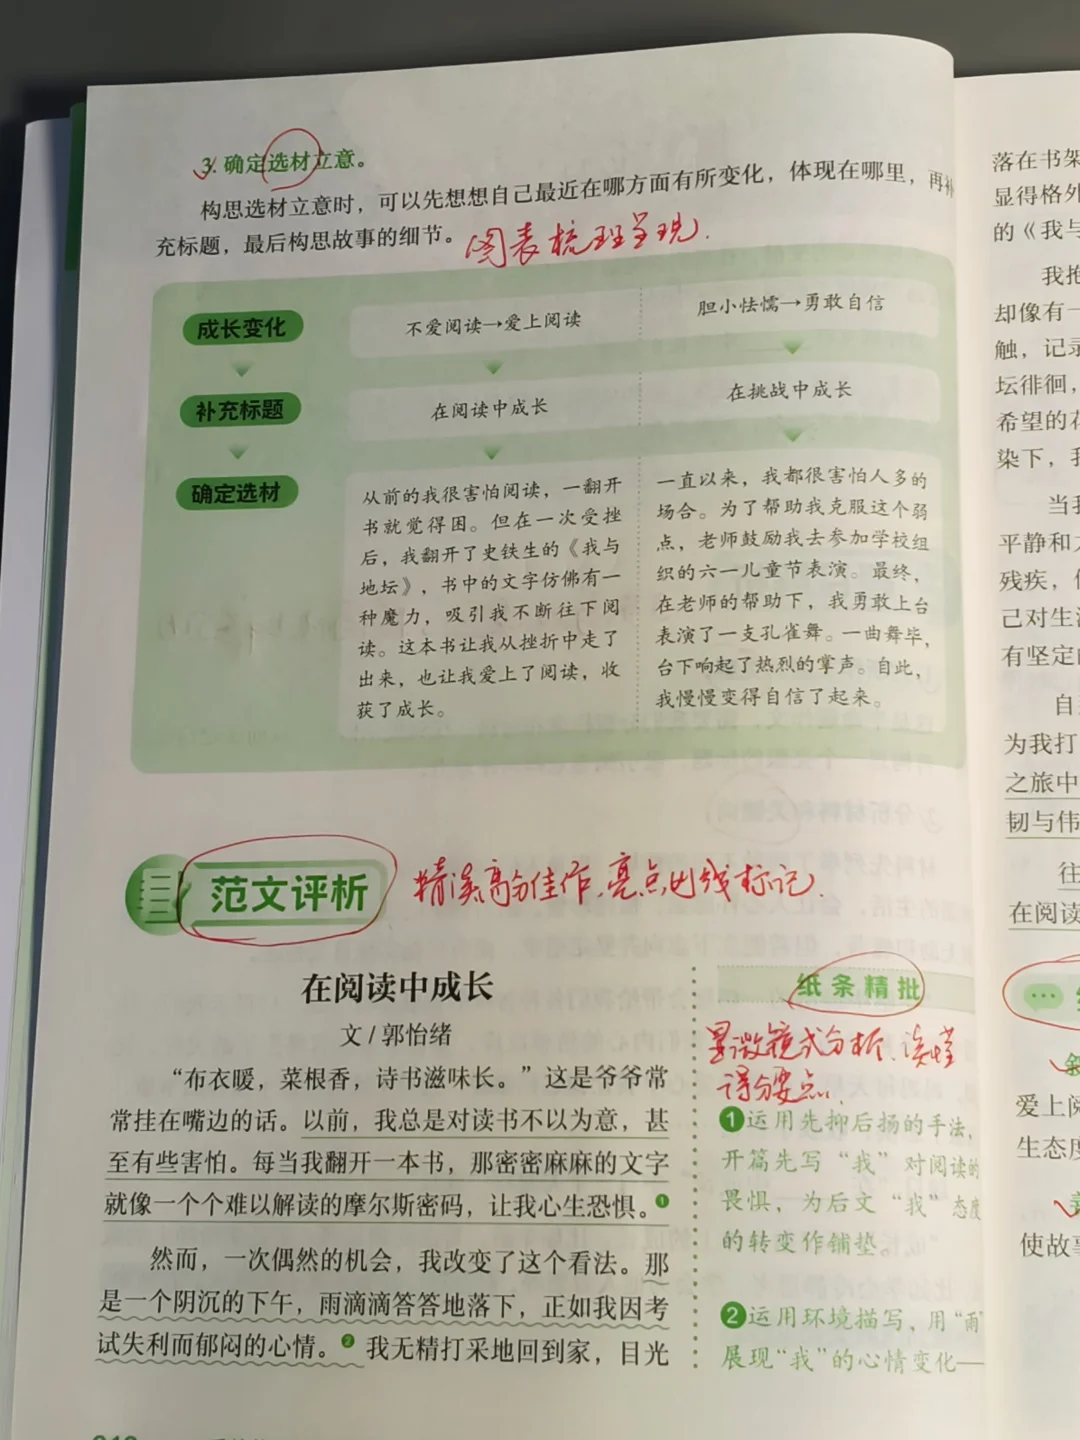 3. 确定选材立意。
构思选材立意时，可以先想想自己最近在哪方面有所变化，体现在哪里，再补
充标题，最后构思故事的细节。
图表梳理呈现.
成长变化
不爱阅读→爱上阅读
胆小怯懦→勇敢自信
补充标题
在阅读中成长
在挑战中成长
确定选材
从前的我很害怕阅读，一翻开
书就觉得困。但在一次受挫
后，我翻开了史铁生的《我与
地坛》，书中的文字仿佛有一
种魔力，吸引我不断往下阅
读。这本书让我从挫折中走了
出来，也让我爱上了阅读，收
获了成长。
一直以来，我都很害怕人多的
场合。为了帮助我克服这个弱
点，老师鼓励我去参加学校组
织的六一儿童节表演。最终，
在老师的帮助下，我勇敢上台
表演了一支孔雀舞。一曲舞毕，
台下响起了热烈的掌声。自此，
我慢慢变得自信了起来。
范文评析
精选高分佳作、亮点出线标记.
在阅读中成长
文/郭怡绪
“布衣暖，菜根香，诗书滋味长。”这是爷爷常
常挂在嘴边的话。以前，我总是对读书不以为意，甚
至有些害怕。每当我翻开一本书，那密密麻麻的文字
就像一个个难以解读的摩尔斯密码，让我心生恐惧。❶
然而，一次偶然的机会，我改变了这个看法。那
是一个阴沉的下午，雨滴滴答答地落下，正如我因考
试失利而郁闷的心情。❷我无精打采地回到家，目光
纸条精批
显微镜式分析、读懂
得分要点.
❶运用先抑后扬的手法，
开篇先写“我”对阅读的
畏惧，为后文“我”态度
的转变作铺垫。
❷运用环境描写，用“雨”
展现“我”的心情变化—
落在书架
显得格外
的《我与
我抱
却像有一
触，记录
坛徘徊，
希望的花
染下，我
当我
平静和
残疾，但
己对生活
有坚定的
自
为我打
之旅中
韧与伟
往
在阅读
爱上阅
生态度
使故事